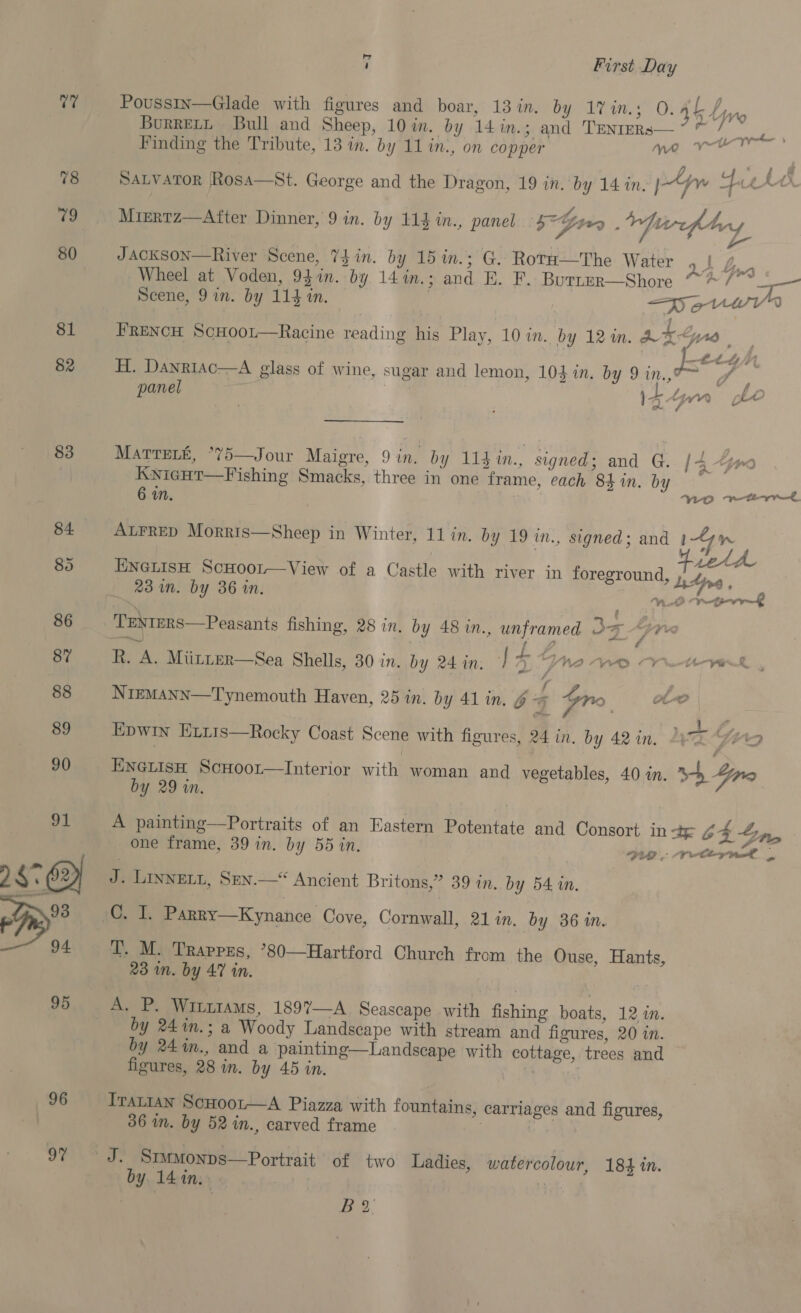 7 First Day
77 Poussin—Glade with figures and boar, 13 in. by 17 in.; O.
Burrell Bull and Sheep, 10 in. by 14 in.; and Teniers—
Finding the Tribute, 13 in. by 11 in., on copper
78 Salvator Rosa—St. George and the Dragon, 19 in. by 14 in.
79 Miertz—After Dinner, 9 in. by 11½ in., panel
80 Jackson—River Scene, 7½ in. by 15 in.; G. Roth—The Water
Wheel at Voden, 9½ in. by 14 in.; and E. F. Butler—Shore
Scene, 9 in. by 11½ in.
81 French School—Racine reading his Play, 10 in. by 12 in.
82 H. Danriac—A glass of wine, sugar and lemon, 10½ in. by 9 in.,
panel
83 Mattelé, ’75—Jour Maigre, 9 in. by 11½ in., signed; and G.
Knight—Fishing Smacks, three in one frame, each 8½ in. by
6 in.
84 Alfred Morris—Sheep in Winter, 11 in. by 19 in., signed; and
85 English School—View of a Castle with river in foreground,
23 in. by 36 in.
86 Teniers—Peasants fishing, 28 in. by 48 in., unframed
87 R. A. Müller—Sea Shells, 30 in. by 24 in.
88 Niemann—Tynemouth Haven, 25 in. by 41 in.
89 Edwin Ellis—Rocky Coast Scene with figures, 24 in. by 42 in.
90 English School—Interior with woman and vegetables, 40 in.
by 29 in.
91 A painting—Portraits of an Eastern Potentate and Consort in
one frame, 39 in. by 55 in.
J. Linnell, Sen.—“Ancient Britons,” 39 in. by 54 in.
93 C. I. Parry—Kynance Cove, Cornwall, 21 in. by 36 in.
94 T. M. Trappes, ’80—Hartford Church from the Ouse, Hants,
23 in. by 47 in.
95 A. P. Williams, 1897—A Seascape with fishing boats, 12 in.
by 24 in.; a Woody Landscape with stream and figures, 20 in.
by 24 in., and a painting—Landscape with cottage, trees and
figures, 28 in. by 45 in.
96 Italian School—A Piazza with fountains, carriages and figures,
36 in. by 52 in., carved frame
97 J. Simmonds—Portrait of two Ladies, watercolour, 18½ in.
by 14 in.
B 2